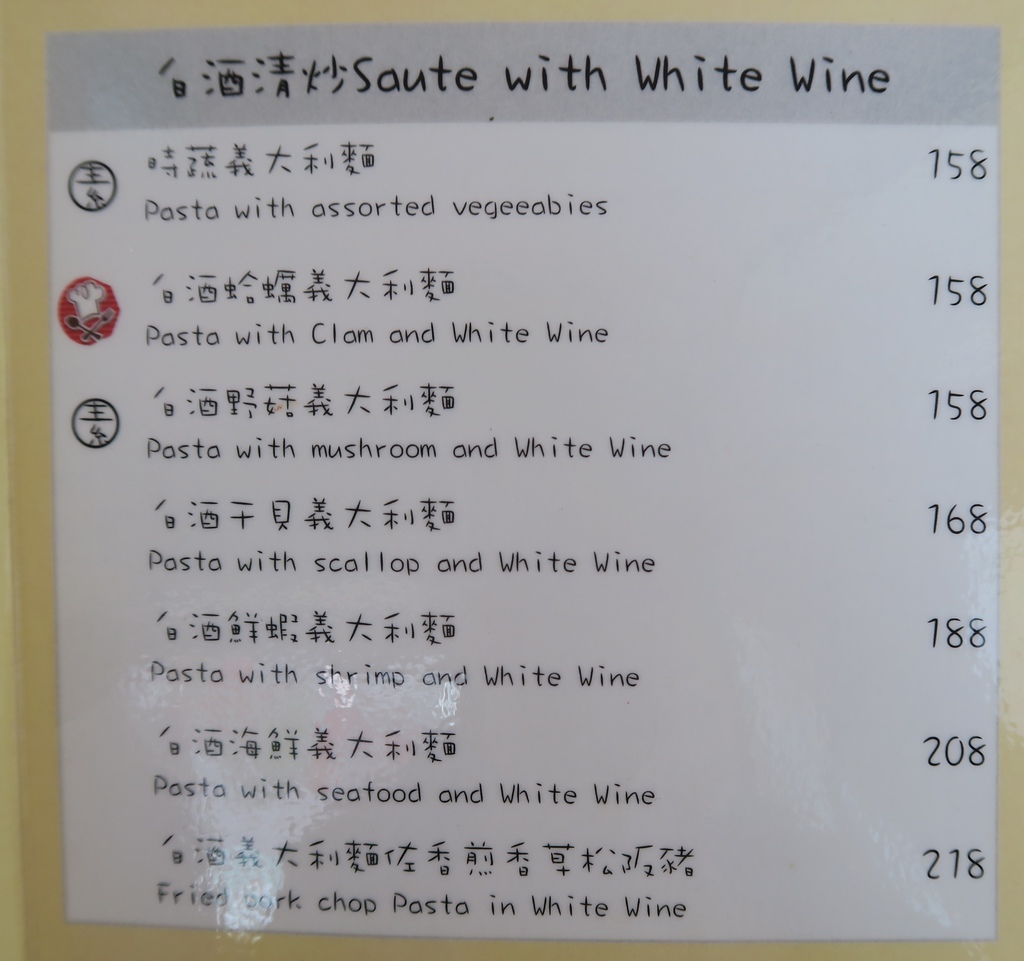 白酒清炒Saute with White Wine
素 時蔬義大利麵 158
Pasta with assorted vegeeabies
白酒蛤蠣義大利麵 158
Pasta with Clam and White Wine
素 白酒野菇義大利麵 158
Pasta with mushroom and White Wine
白酒干貝義大利麵 168
Pasta with scallop and White Wine
白酒鮮蝦義大利麵 188
Pasta with shrimp and White Wine
白酒海鮮義大利麵 208
Pasta with seafood and White Wine
白酒義大利麵佐香煎香草松阪豬 218
Fried park chop Pasta in White Wine